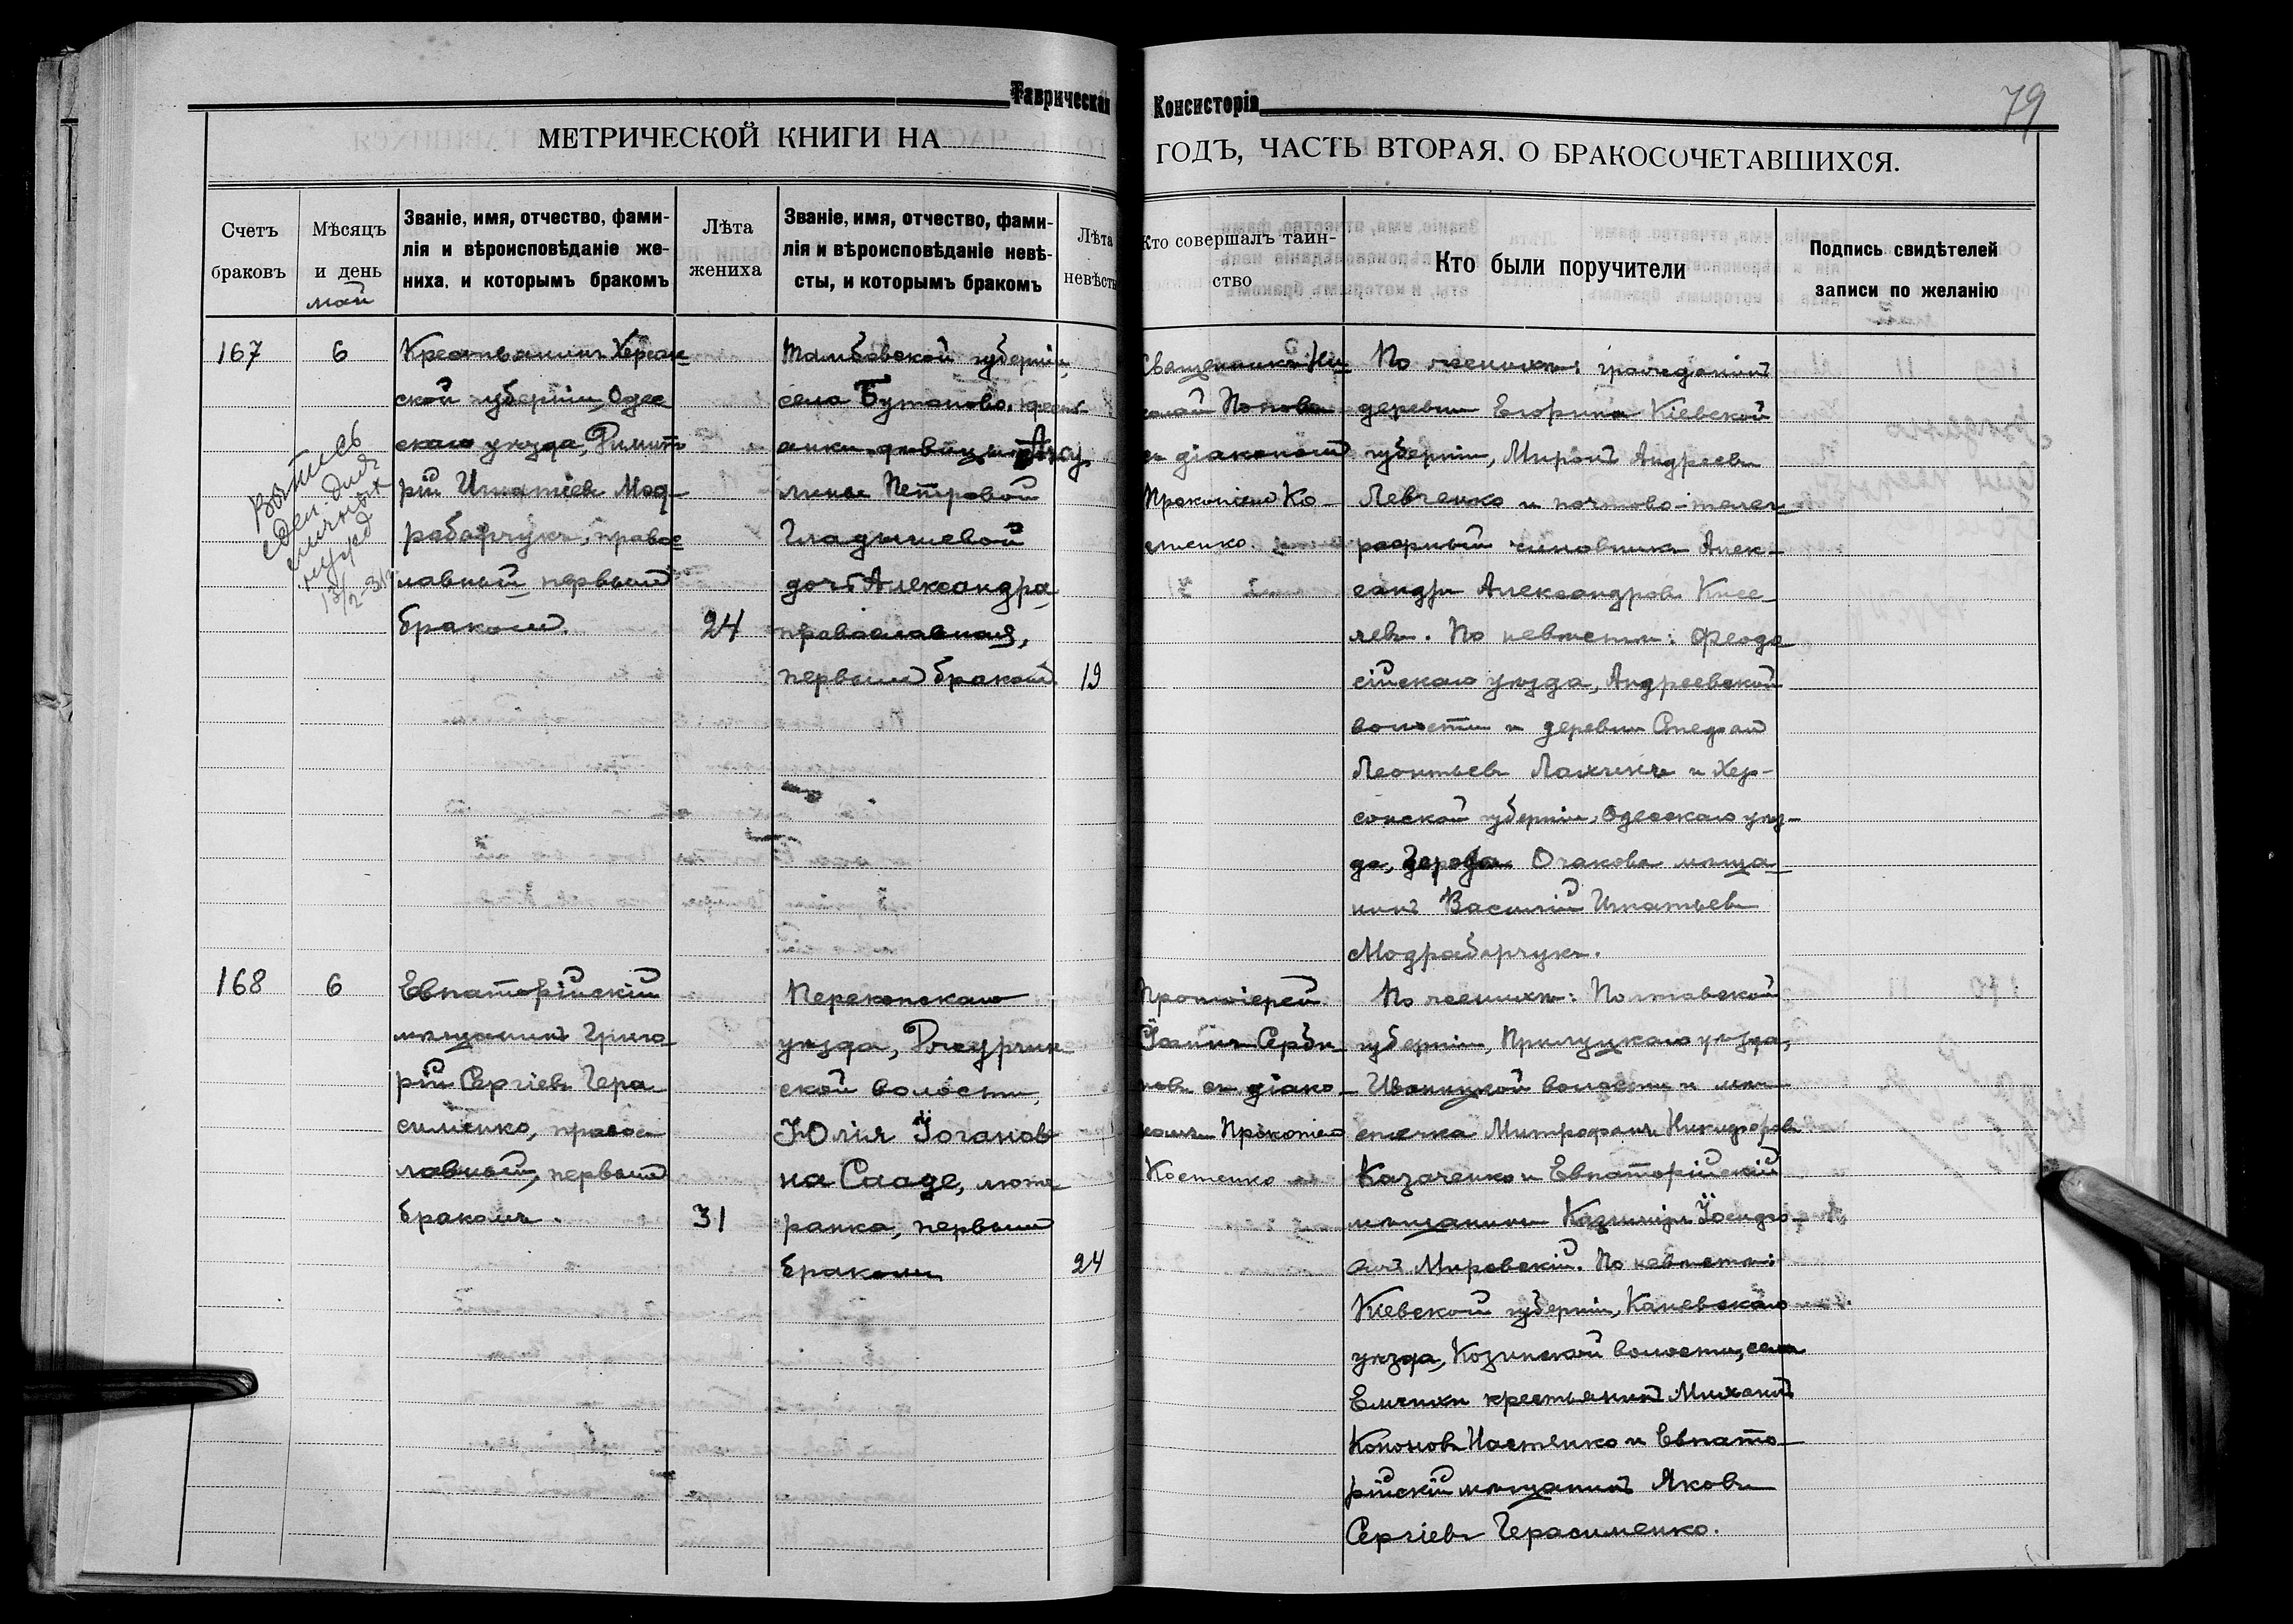 Таврическая Консисторія
79
МЕТРИЧЕСКОЙ КНИГИ НА
ГОДЪ, ЧАСТЬ ВТОРАЯ. О БРАКОСОЧЕТАВШИХСЯ.
Счетъ
браковъ
Мѣсяцъ
и день
май
Званіе, имя, отчество, фами-
лія и вѣроисповѣданіе же-
ниха, и которымъ бракомъ
Лѣта
жениха
Званіе, имя, отчество, фами-
лія и вѣроисповѣданіе невѣ-
сты, и которымъ бракомъ
Лѣта
невѣсты
Кто совершалъ таин-
ство
Кто были поручители
Подпись свидѣтелей
записи по желанію
167
6
Выпись
для
личных
нужд
13/2-31
Крестьянинъ Херсон-
ской губерніи, Одес
скаго уѣзда, Димит
рій Игнатіевъ Мод-
рабарчукъ, правос
лавный первымъ
бракомъ.
24
Тамбовской губерніи,
села Бутаково, крест
анки девицы Аку
лины Петровой
Гладышевой
дочь Александра
православная,
первымъ бракомъ
19
Священникъ Ни-
колай Поповъ
съ діакономъ
Прокопіемъ Ко-
стенко.
По женихѣ: гражданинъ
деревни Егорина Кіевской
губерніи, Миронъ Андреевъ
Левченко и почтово-телег-
рафный чиновникъ Алек-
сандръ Александровъ Кисе-
левъ. По невѣстѣ: Феодо
сійскаго уѣзда, Андреевской
волости и деревни Спедан
Леонтьевъ Лахчикъ и Хер-
сонской губерніи, Одесскаго уѣз-
да, города Очакова мѣща-
нинъ Василій Игнатьевъ
Модрабарчукъ.
168
6
Евпаторійскій
мѣщанинъ Григо-
рій Сергіевъ Гера-
сименко, правос-
лавный, первымъ
бракомъ.
31
Перекопскаго
уѣзда,
ской волости,
Юлія Іоганов
на Сааде, люте-
ранка, первымъ
бракомъ
24
Протоіерей
Іоаннъ Серби-
новъ съ діако-
номъ Прокопіемъ
Костенко
По женихѣ: Полтавской
губерніи, Прилуцкаго уѣзда,
Иваницкой волости и мѣ-
стечка Митрофанъ Никифоровъ
Казаченко и Евпаторійскій
мѣщанинъ Казиміръ Іосифо-
вичъ Мировскій. По невѣстѣ:
Кіевской губерніи, Каневскаго
уѣзда, Козинской волости, села
Емчихи крестьянинъ Михаилъ
Кононовъ Настенко и Евпато-
рійскій мѣщанинъ Яковъ
Сергіевъ Герасименко.